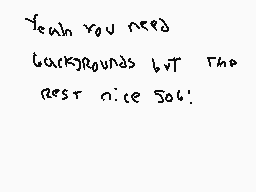 Yeah you need
backgrounds but the
rest nice job!